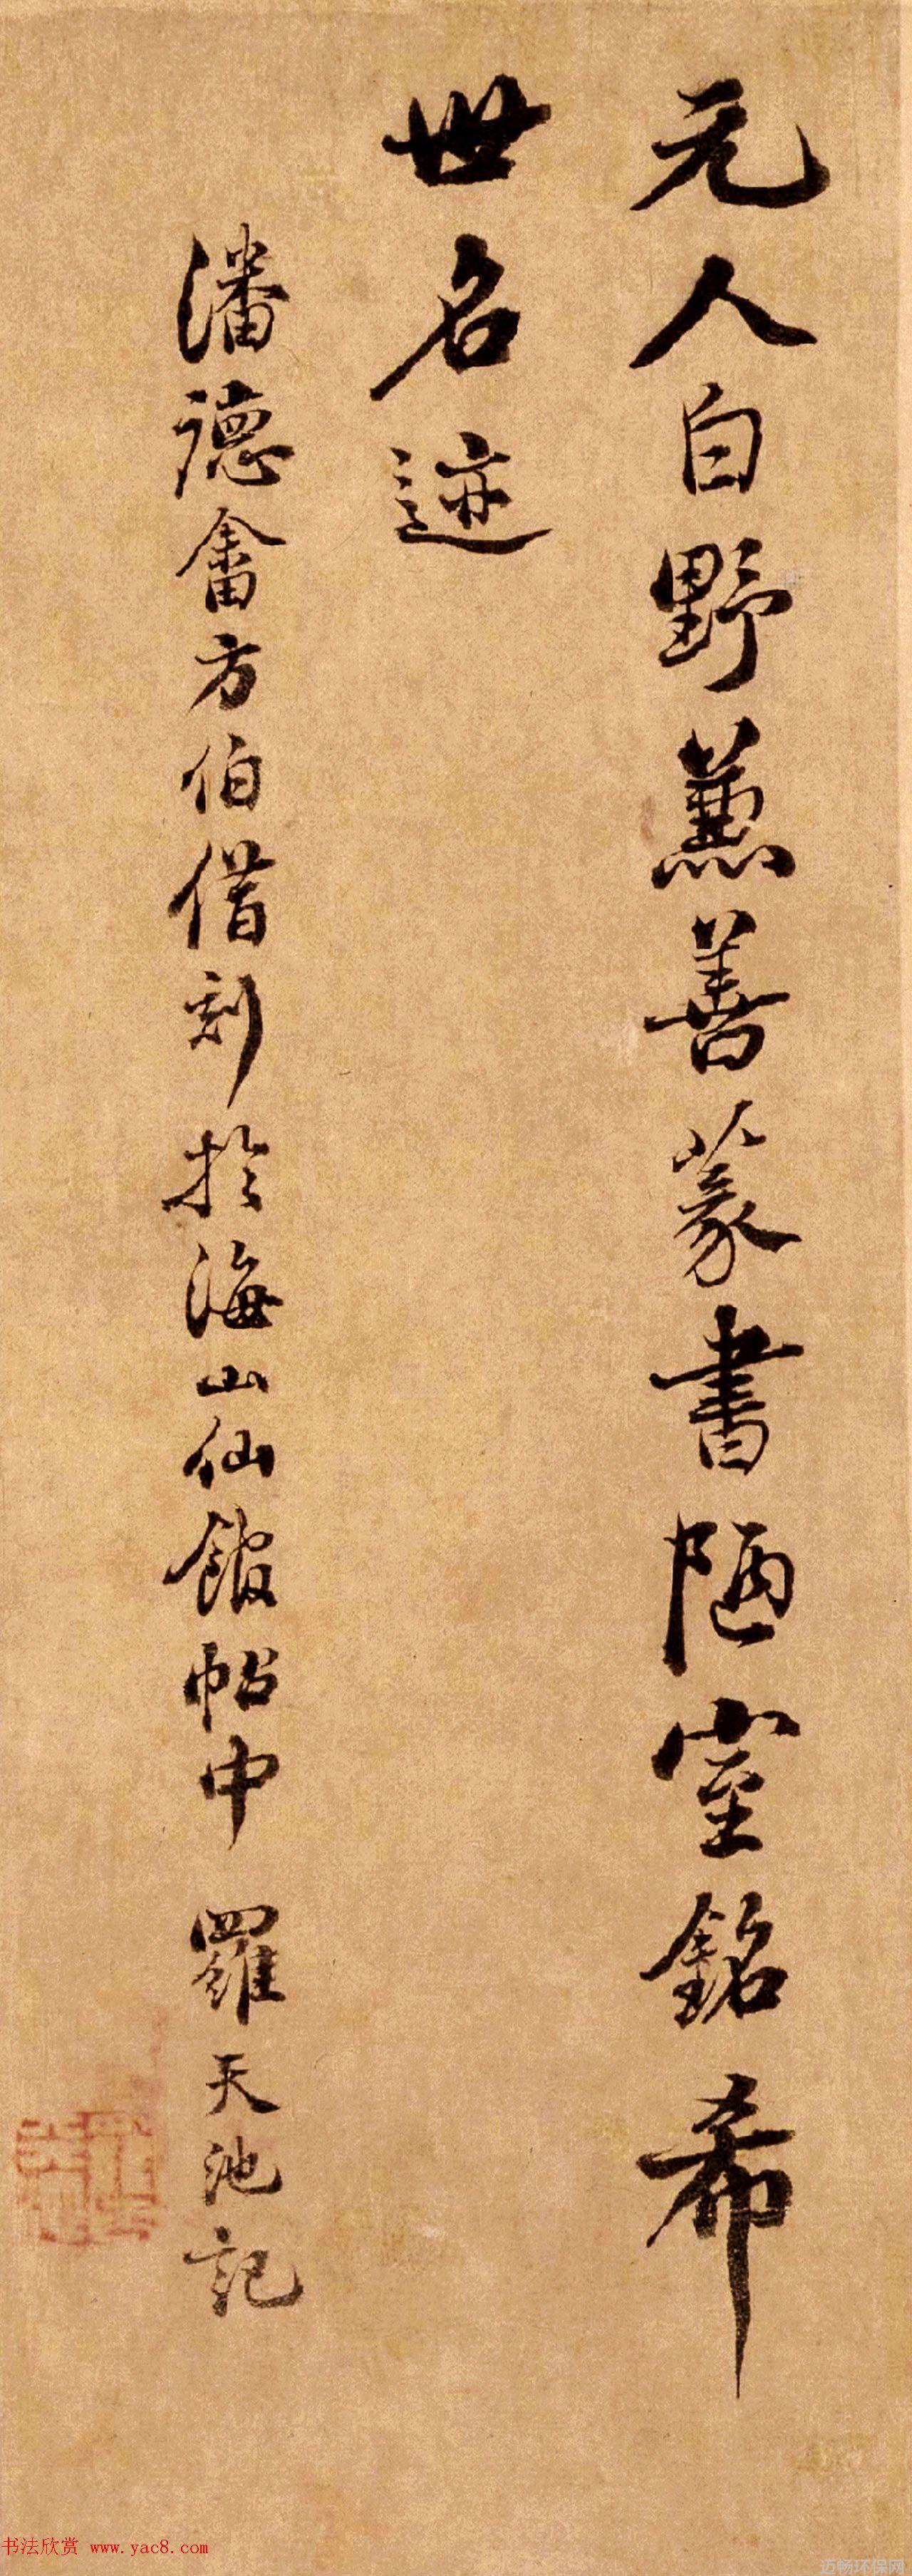 元人白野薫善篆書陋室銘希
世名迹
潘德畬方伯借刻於海山仙館帖中 羅天池記
书法欣赏 www.yac8.com
迈畅环保网